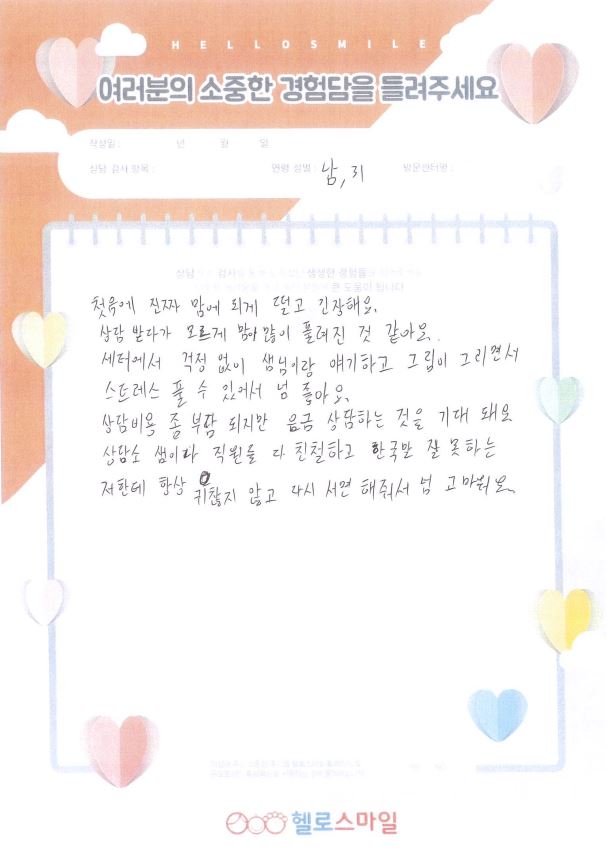 HELLOSMILE
여러분의 소중한 경험담을 들려주세요
작성일 : 년 월 일
상담 검사 항목 : 연령 성별 : 남, 31 방문센터명 :
상담 검사 생생한 경험
큰 도움이 됩니다
첫음에 진짜 맘에 되게 떨고 긴장해요.
상담 받다가 모르게 맘이 많이 풀려진 것 같아요.
세터에서 걱정 없이 쌤님이랑 얘기하고 그림이 그리면서
스트레스 풀 수 있어서 넘 좋아요.
상담비용 좀 부담 되지만 음금 상담하는 것을 기대 돼요
상담소 쌤이나 직원을 다 친철하고 한국말 잘 못하는
저한테 항상 귀찮지 않고 다시 서면 해줘서 넘 고마워요.
헬로스마일